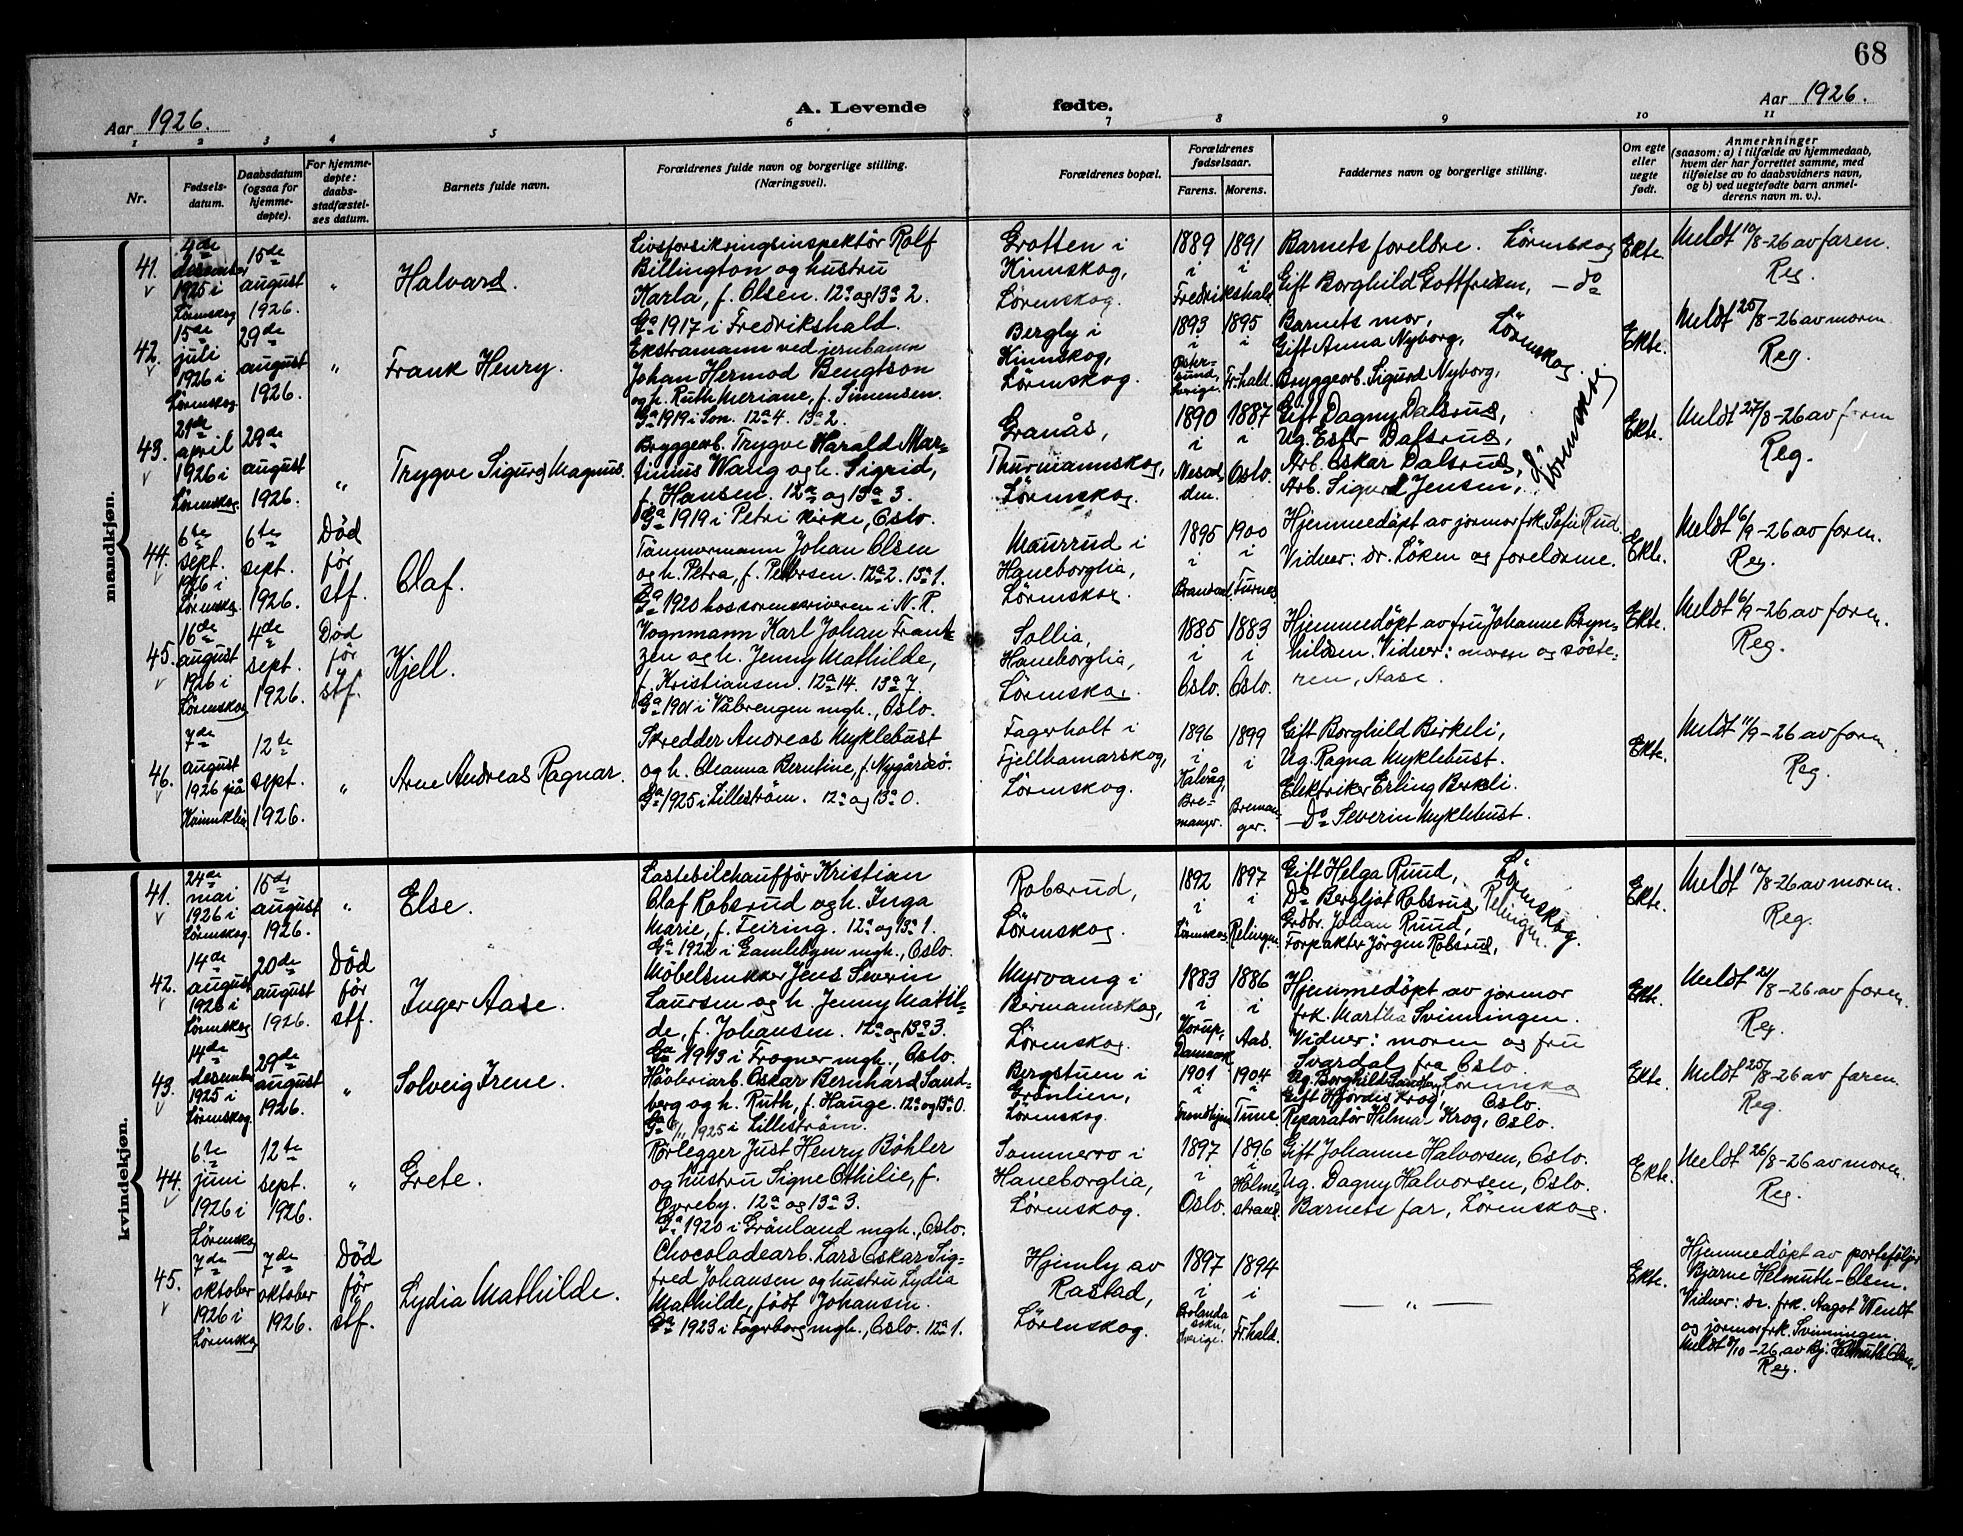 68
Aar 1926.
A. Levende fødte.
Aar 1926.
1 2 3 4 5 6 7 8 9 10 11
Nr.
Fødsels-
datum.
Daabsdatum
(ogsaa for
hjemme-
døpte).
For hjemme-
døpte:
daabs-
stadfæstel-
ses datum.
Barnets fulde navn.
Forældrenes fulde navn og borgerlige stilling.
(Næringsvei).
Forældrenes bopæl.
Forældrenes
fødselsaar.
Farens. Morens.
Faddernes navn og borgerlige stilling.
Om egte
eller
uegte
født.
Anmerkninger
(saasom: a) i tilfælde av hjemmedaab,
hvem der har forrettet samme, med
tilføielse av to daabsvidners navn,
og b) ved uegtefødte barn anmel-
derens navn m. v.).
mandkjøn.
41.
4de
desember
1925 i
Lørenskog
15de
august
1926.
"
Halvard.
Livsforsikringsinspektør Rolf
Billington og hustru
Karla, f. Olsen. 12a og 13a 2.
Ga 1917 i Fredrikshald.
Grotten i
Kinnskog,
Lørenskog.
1889 1891
i i
Fredrikshald
Barnets foreldre. Lørenskog
Gift Borghild Gottfredsen, - do
Ekte.
Meldt 10/8-26 av faren.
Reg.
42.
15de
juli
1926 i
Lørenskog
29de
august
1926.
"
Frank Henry.
Ekstramann ved jernbanen
Johan Hermod Bengtson
og h. Ruth Meriane, f. Simensen.
Ga 1919 i Son. 12a 4. 13a 2.
Bergly i
Kinnskog,
Lørenskog.
1893 1895
i i
Øster-
sund,
Sverige. Fr.hald.
Barnets mor,
Gift Anna Nyborg,
Bryggearb. Sigurd Nyborg,
Lørenskog.
Ekte.
Meldt 25/8-26 av moren
Reg.
43.
21de
april
1926 i
Lørenskog.
29de
august
1926.
"
Trygve Sigurd Magnus.
Bryggearb. Trygve Harald Mar-
tinius Wang og h. Sigrid,
f. Hansen. 12a og 13a 3.
Ga 1919 i Petri kirke, Oslo.
Granås,
Thurmannskog,
Lørenskog.
1890 1887
i i
Nesod-
den. Oslo.
Gift Dagny Dalsrud,
Ug. Ester Dalsrud,
Arb. Oskar Dalsrud,
Arb. Sigurd Jensen,
Lørenskog
Ekte.
Meldt 27/8-26 av faren
Reg.
44.
6te
sept.
1926 i
Lørenskog
6te
sept.
1926.
Død
før
stf.
Olaf.
Tømmermann Johan Olsen
og h. Petra, f. Petersen. 12a 2. 13a 1.
Ga 1920 hos sorenskriveren i N. R.
Maurrud i
Haneborglia,
Lørenskog.
1895 1900
i i
Hjemmedøpt av jormor frk. Sofie Rud.
Vidner: dr. Løken og foreldrene.
Ekte.
Meldt 6/9-26 av faren.
Reg.
45.
16de
august
1926 i
Lørenskog
4de
sept.
1926.
Død
før
stf.
Kjell.
Vognmann Karl Johan Frant-
zen og h. Jenny Mathilde,
f. Kristiansen. 12a 14. 13a 7.
Ga 1901 i Vålerengen mgh., Oslo.
Sollia,
Haneborglia,
Lørenskog.
1885 1883
i i
Oslo. Oslo.
Hjemmedøpt av fru Johanne Bryn-
hildsen. Vidner: moren og søste-
ren, Aase.
Ekte.
Meldt 6/9-26 av faren.
Reg.
46.
7de
august
1926 på
12te
sept.
1926.
"
Arne Andreas Ragnar.
Skredder Andreas Myklebust
og h. Oleanna Berntine, f. Nygårdsø.
Ga 1925 i Lillestrøm. 12a og 13a 0.
Fagerholt i
Fjellhamarskog,
Lørenskog.
1896 1899
i i
Kalvåg,
Bre-
manger. Breman-
ger.
Gift Borghild Birkeli,
Ug. Ragna Myklebust.
Elektriker Erling Birkeli.
- Do Severin Myklebust.
Ekte.
Meldt 11/9-26 av faren.
Reg.
kvindekjøn.
41.
24de
mai
1926 i
Lørenskog.
15de
august
1926.
"
Else.
Lastebilchauffør Kristian
Olaf Robsrud og h. Inga
Marie, f. Feiring. 12a og 13a 1.
Ga 1922 i Gamlebyen mgh., Oslo.
Robsrud,
Lørenskog.
1892 1897
i i
Lørenskog Relingen.
Gift Helga Ruud,
Do Bergljot Robsrud, Relingen.
Grdbr. Johan Ruud,
Forpakter Jørgen Robsrud,
Lørenskog.
Ekte.
Meldt 10/8-26 av moren.
Reg.
42.
14de
august
1926 i
Lørenskog
20de
august
1926.
Død
før
stf.
Inger Aase.
Møbelsnekker Jens Severin
Laursen og h. Jenny Matil-
de, f. Johansen. 12a og 13a 3.
Ga 1913 i Frogner mgh., Oslo.
Myrvang i
Bermannskog,
Lørenskog.
1883 1886
i i
Danmark Aas.
Hjemmedøpt av jormor
frk. Martha Svinningen.
Vidner: moren og fru
Svardal fra Oslo.
Ekte.
Meldt 21/8-26 av faren.
Reg.
43.
14de
desember
1925 i
Lørenskog
29de
august
1926.
"
Solveig Irene.
Høvleriarb. Oskar Bernhard Sand-
berg og h. Ruth, f. Hauge. 12a og 13a 0.
1925 i Lillestrøm.
Bergstuen i
Grønlien,
Lørenskog.
1901 1904
i i
Trondhjem Tune.
Ug. Borghild Sandberg, Lørenskog
Gift Hjørdis Krog, Oslo.
Reparatør Hilmar Krog, Oslo.
Ekte.
Meldt 25/8-26 av faren
Reg.
44.
6te
juni
1926 i
Lørenskog
12te
sept.
1926.
"
Grete.
Rørlegger Just Henry Bøhler
og hustru Signe Othilie, f.
Øvreby. 12a og 13a 3.
Ga 1920 i Grønland mgh., Oslo.
Sommerro i
Haneborglia,
Lørenskog.
1897 1896
i i
Oslo. Holme-
strand.
Gift Johanne Halvorsen, Oslo.
Ug. Dagny Halvorsen, Oslo.
Barnets far, Lørenskog.
Ekte.
Meldt 26/8-26 av moren.
Reg.
45.
7de
oktober
1926 i
Lørenskog
7de
oktober
1926.
Død
før
stf.
Lydia Mathilde.
Chocoladearb. Lars Oskar Sig-
fred Johansen og hustru Lydia
Mathilde, født Johansen.
Ga 1923 i Fagerborg mgh., Oslo. 12a 1.
Hjemly av
Rastad,
Lørenskog.
1897 1894
i i
Sverige. Fr.hald.
— " —
Ekte.
Hjemmedøpt av porteføljør
Bjarne Helmuth-Olsen.
Vidner: dr. frk. Aagot Wendt
og jormor frk. Svinningen.
Meldt 8/10-26 av Bj. Helmuth Olsen.
Reg.